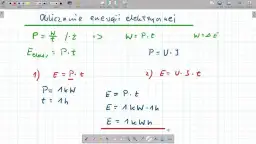 Obliczanie energii elektrycznej
P = W/t /·t => W = P·t W = ΔE
E elektr. = P·t P = U·I
1) E = P·t 2) E = U·I·t
P = 1kW
t = 1h E = P·t
E = 1kW·1h
E = 1kWh